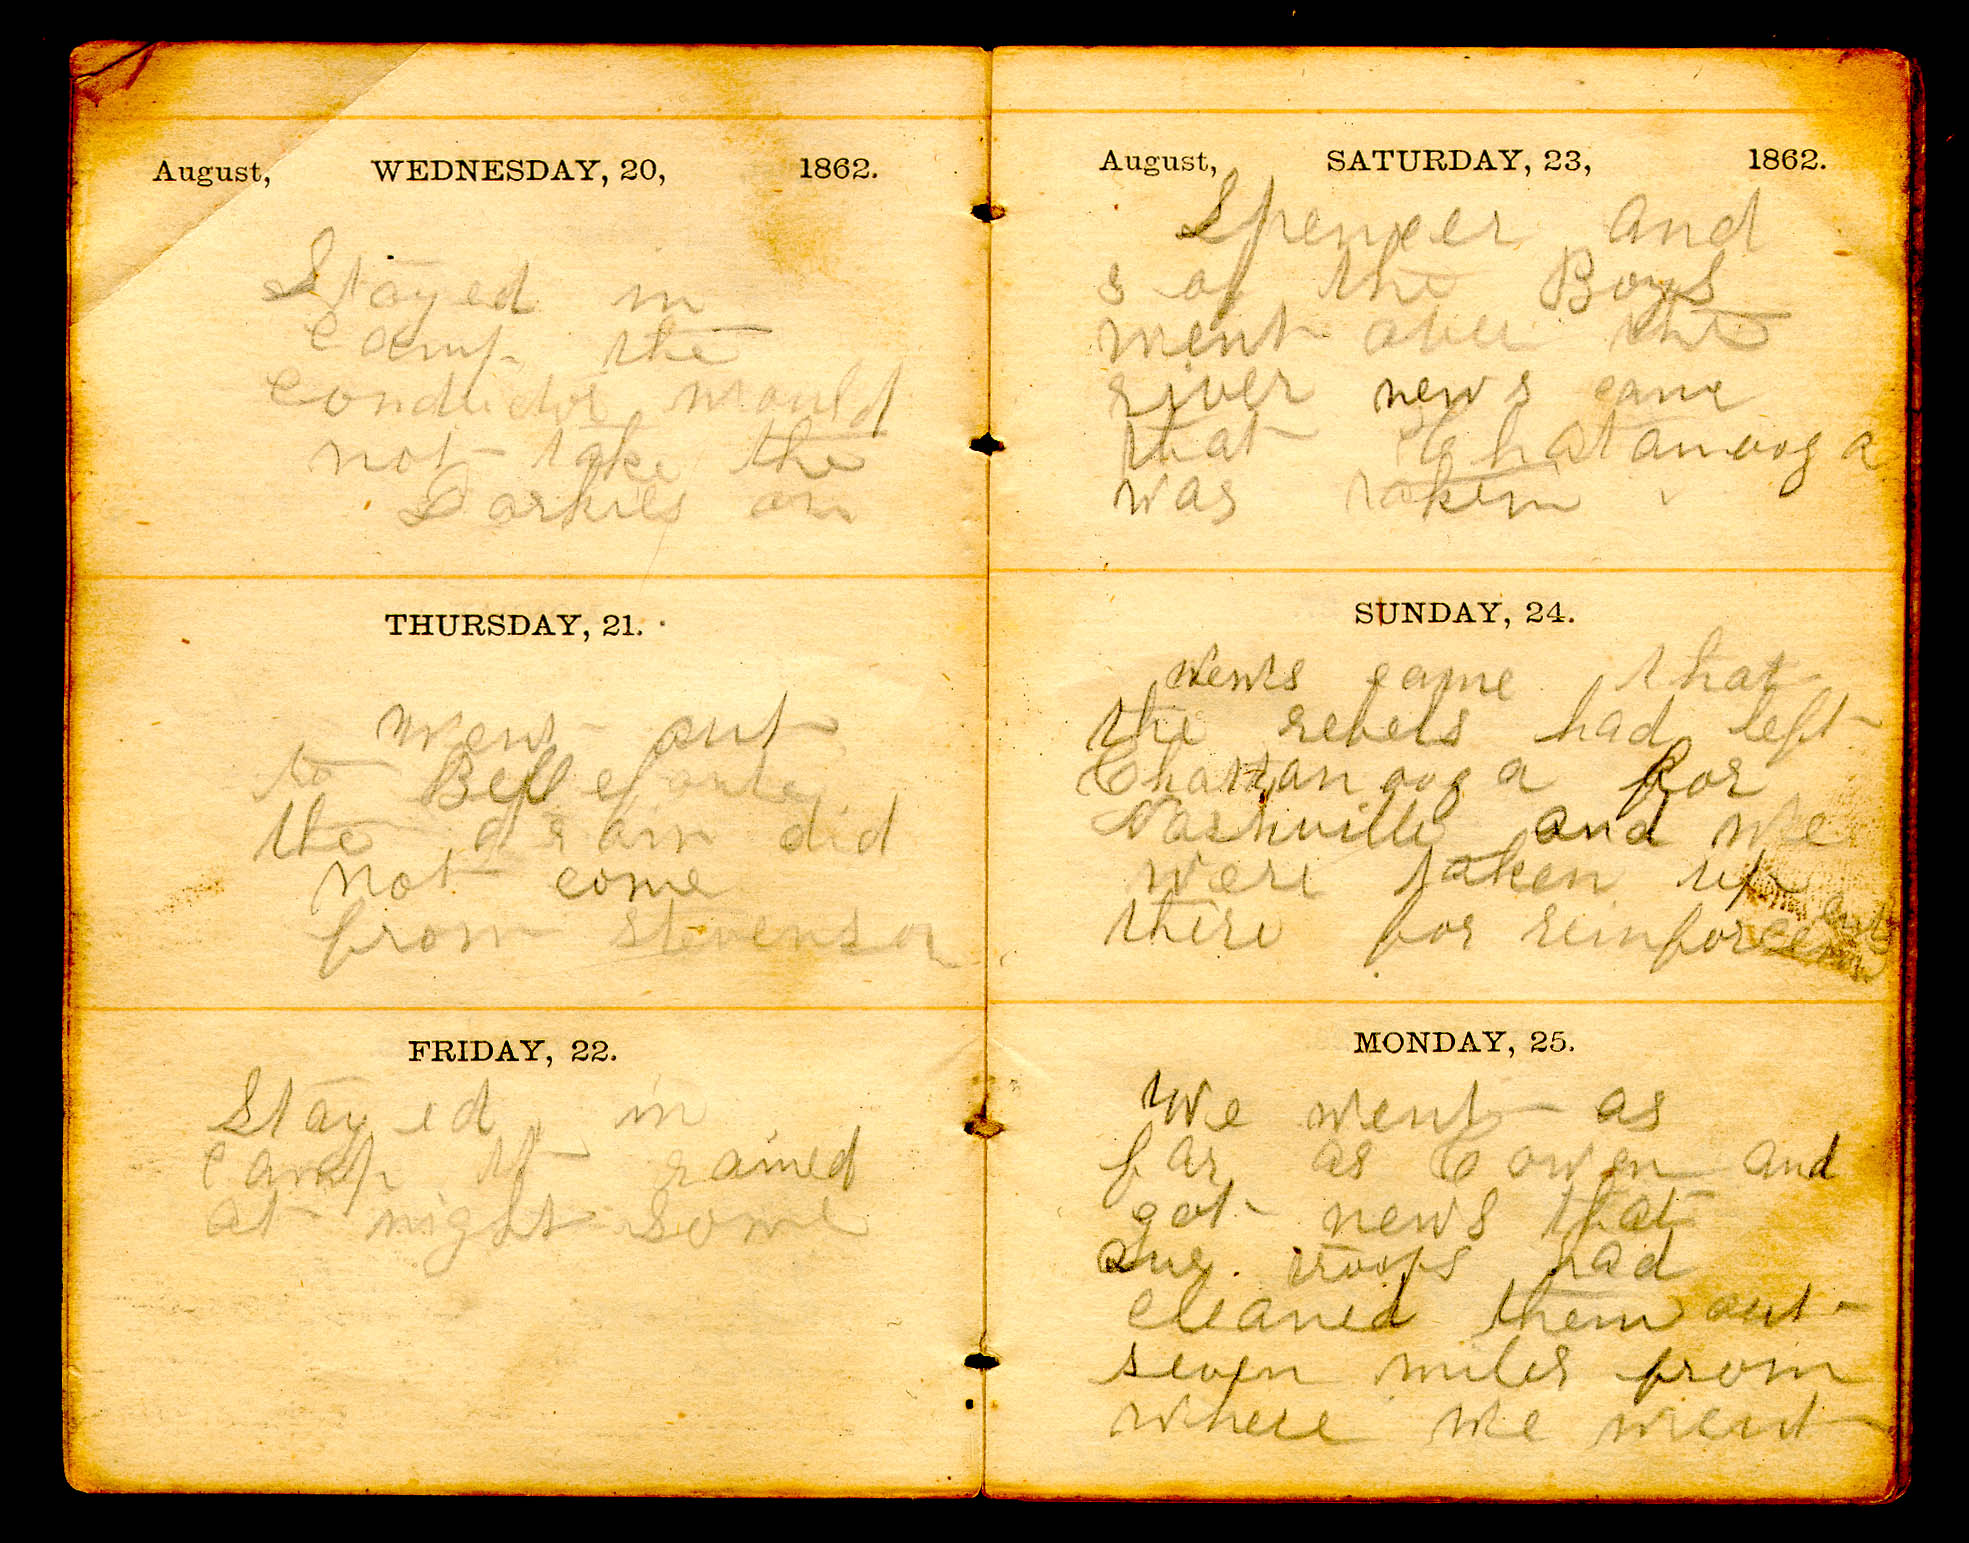 August, WEDNESDAY, 20, 1862.
Stayed in
camp the
conductor would
not take the
Darkies on
THURSDAY, 21.
went out
to Bellefonte
the train did
not come
from stevenson
FRIDAY, 22.
Stayed in
camp it rained
at night some
August, SATURDAY, 23, 1862.
Spencer and
8 of the Boys
went over the
river news came
that Chatanooga
was taken
SUNDAY, 24.
News came that
the rebels had left
Chattanooga for
Nashville and we
were taken up
there for reinforcements
MONDAY, 25.
We went as
far as Cowen and
got news that
our troops had
cleaned them out
seven miles from
where we went